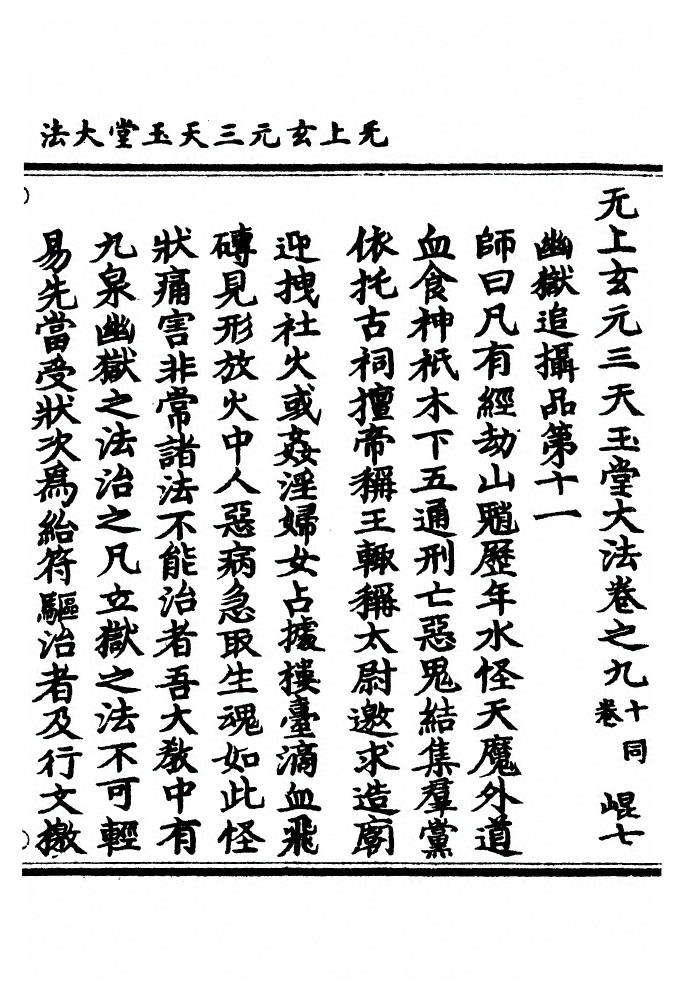 无上玄元三天玉堂大法
无上玄元三天玉堂大法卷之九 十同卷 崐七
幽獄追攝品第十一
師曰凡有經劫山魈歷年水怪天魔外道
血食神祇木下五通刑亡惡鬼結集羣黨
依托古祠擅帝稱王輙稱太尉邀求造廟
迎拽社火或姦淫婦女占據樓臺滴血飛
磚見形放火中人惡病急取生魂如此怪
狀痛害非常諸法不能治者吾大教中有
九泉幽獄之法治之凡立獄之法不可輕
易先當受狀次爲給符驅治者及行文檄